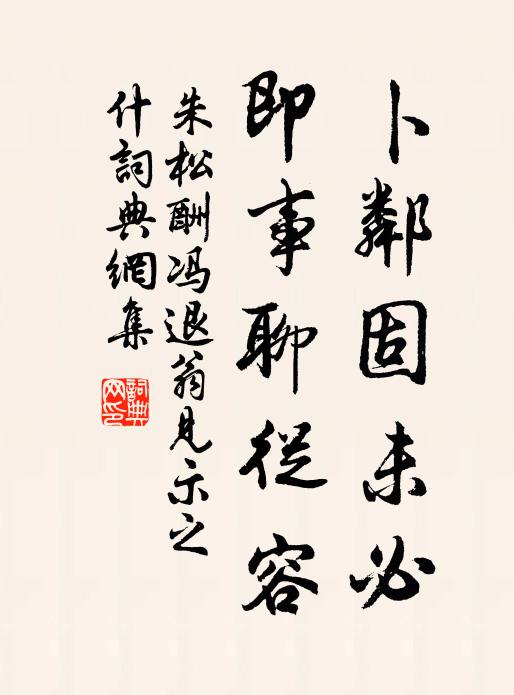 卜鄰固未必
即事聊從容
朱松酬冯退翁見示之
什詞典網集
詞典網印